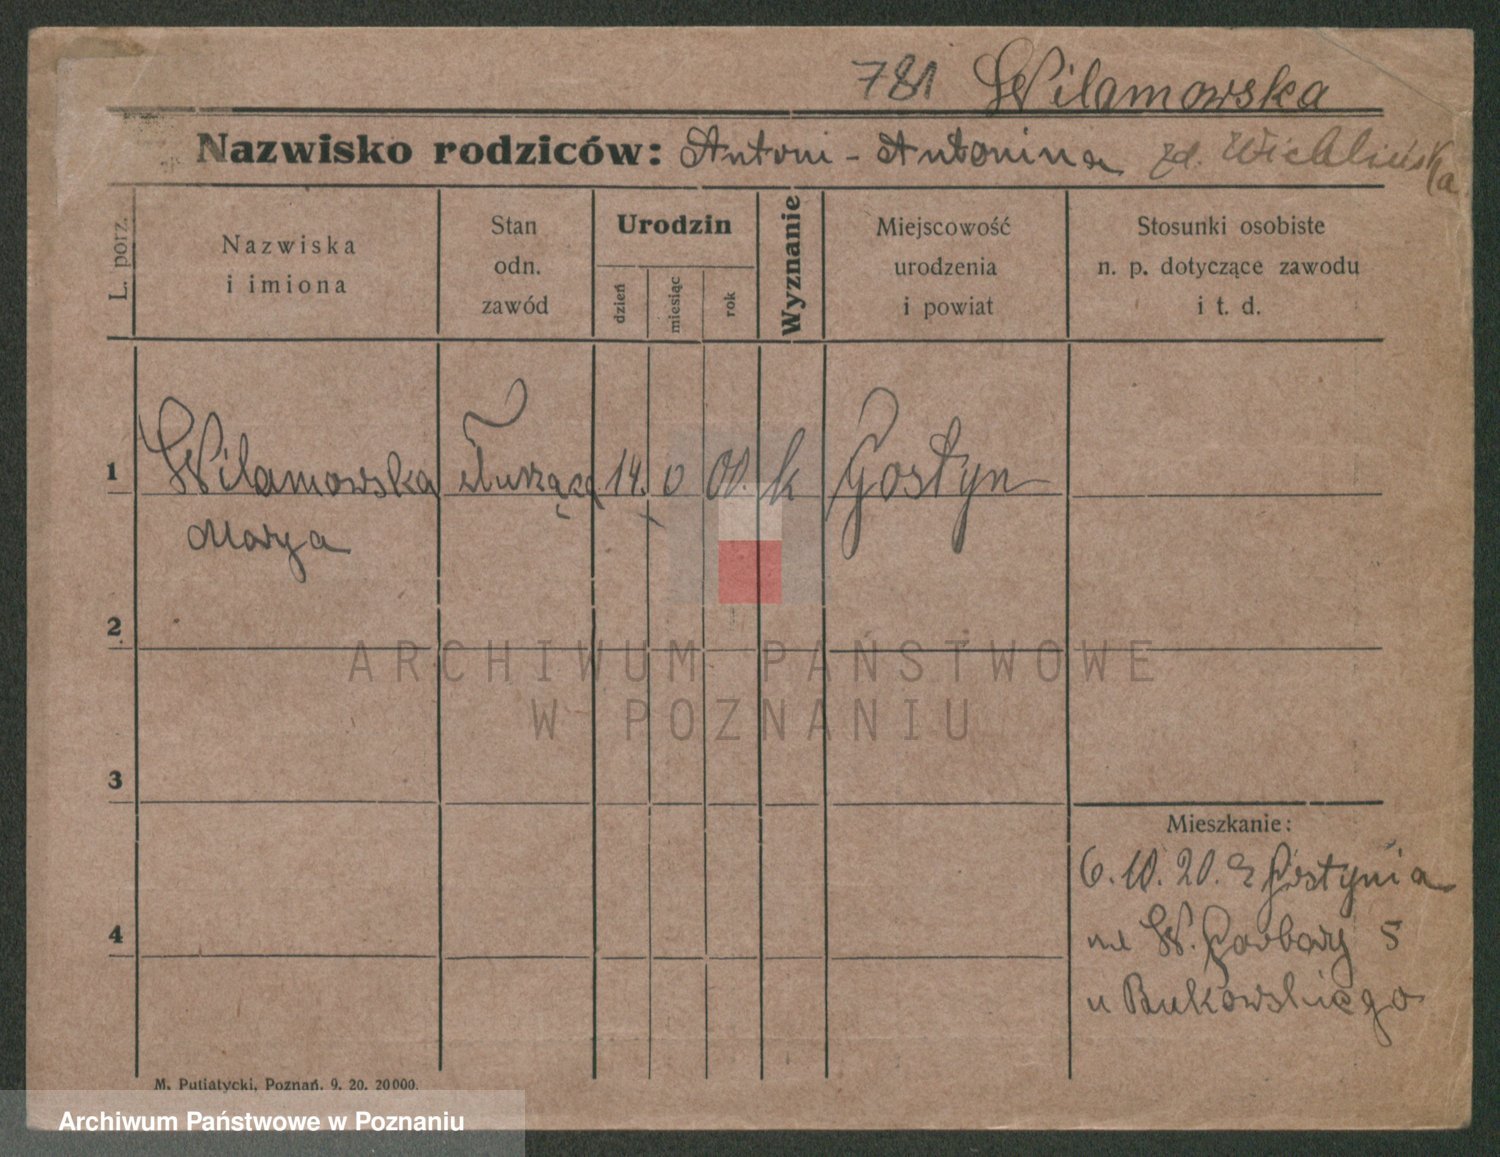 781 Wilamowska
Nazwisko rodziców: Antoni - Antonina zd.
L. porz.
Nazwiska
i imiona
Stan
odn.
zawód
Urodzin
dzień
miesiąc
rok
Wyznanie
Miejscowość
urodzenia
i powiat
Stosunki osobiste
n. p. dotyczące zawodu
i t. d.
1 Wilamowska służąca 14. 00. k Gostyn
Marya
2
ARCHIWUM PAŃSTWOWE
W POZNANIU
3
Mieszkanie:
6.10.20. z Gostynia
4
na W. Garbary 5
u Bukowskiego
M. Putiatycki, Poznań. 9. 20. 20000.
Archiwum Państwowe w Poznaniu